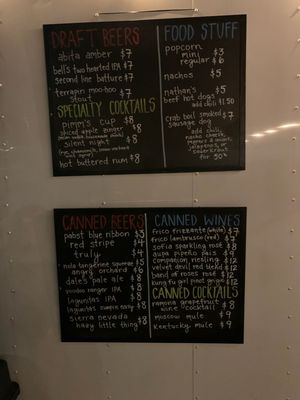 DRAFT BEERS
abita amber $7
bell's two hearted IPA $7
second line batture $7
terrapin moo-hoo
stout $7
SPECIALTY COCKTAILS
pimm's cup $8
spiced apple ginger $8
silent night $8
hot buttered rum $8
FOOD STUFF
popcorn
mini $3
regular $6
nachos $5
nathan's $5
beef hot dogs
add chili $1.50
crab boil smoked $7
sausage dog
add chili,
nacho cheese,
jalapeños, or
sauerkraut
for 50¢
CANNED BEERS
pabst blue ribbon $3
red stripe $4
truly $4
nola tangerine squeeze $5
angry orchard $6
dale's pale ale $8
voodoo ranger IPA $8
lagunitas IPA $8
lagunitas sumpin easy $8
sierra nevada
hazy little thing $8
CANNED WINES
frico frizzante (white) $7
frico lambrusco (red) $7
sofia sparkling rosé $8
companion riesling $12
velvet devil red blend $12
band of roses rosé $12
kung fu girl pinot grigio $12
CANNED COCKTAILS
ramona grapefruit
wine cocktail $8
moscow mule $9
kentucky mule $9